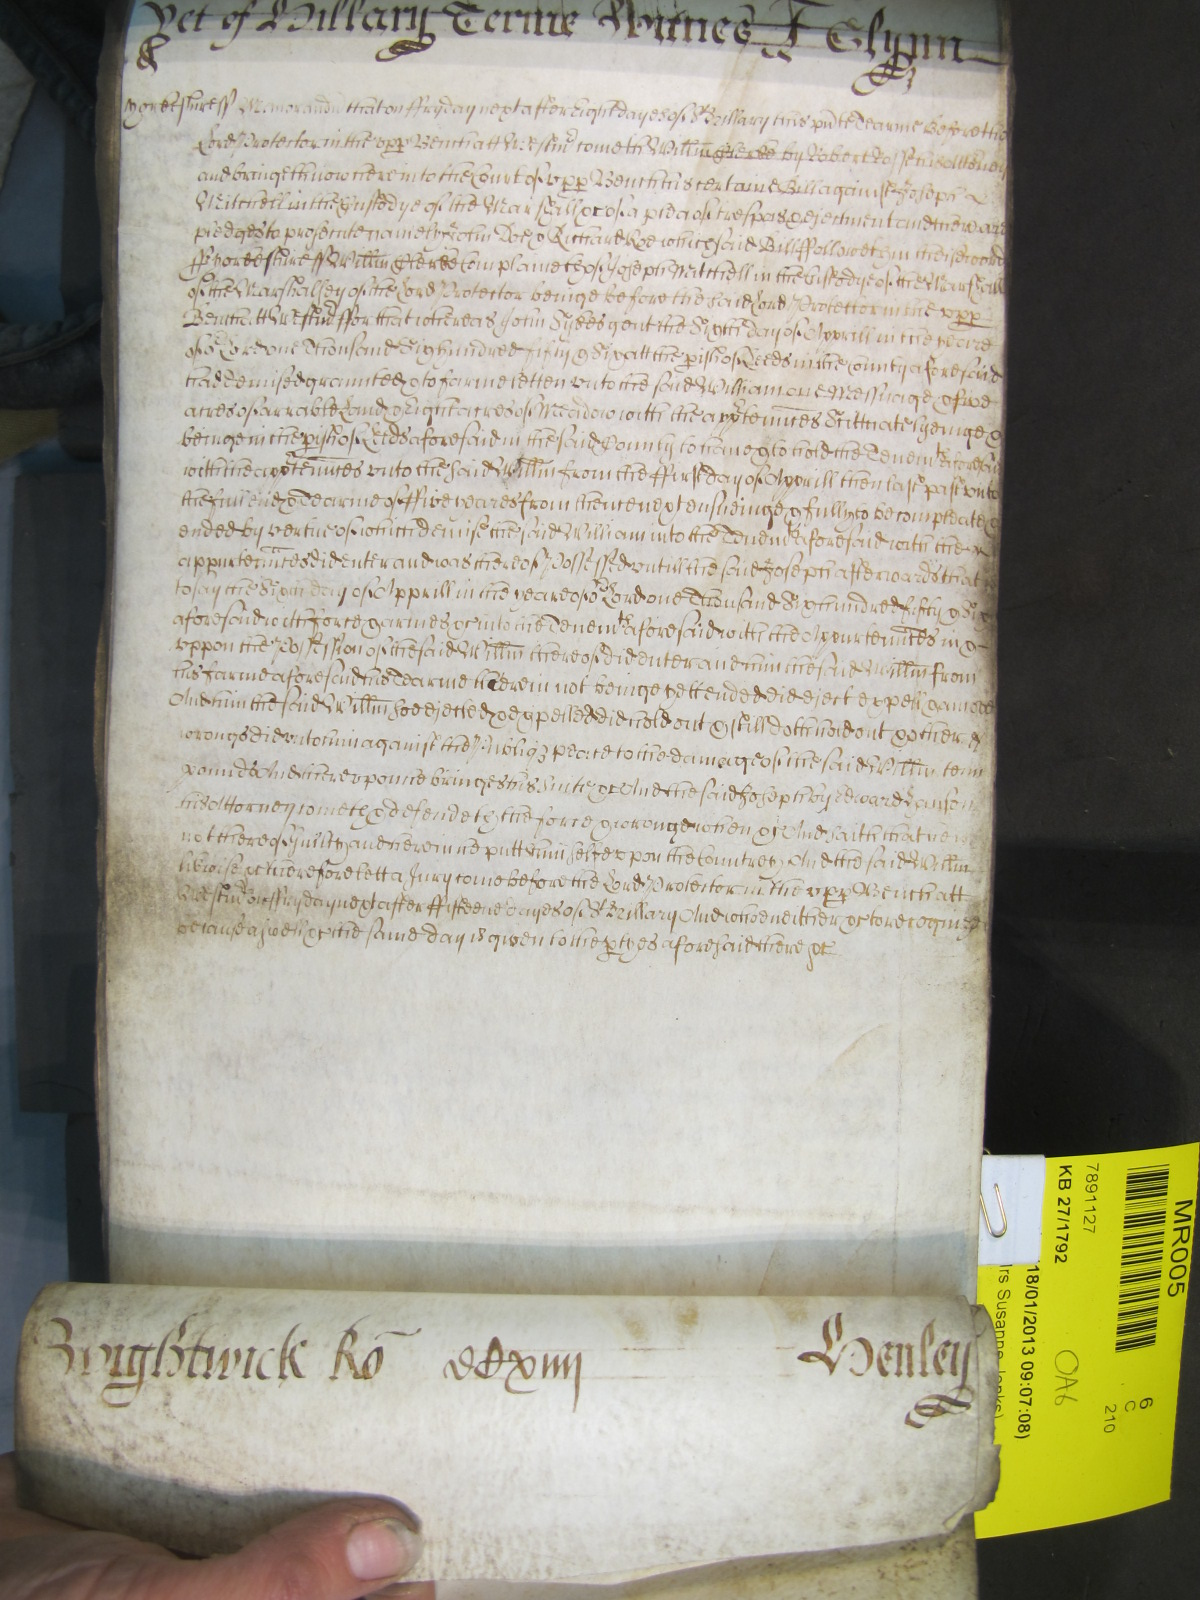 yet of Hillary Terme Wittnes J Glynn
Yorkesh'ress Memorand' that on ffryday next after Eight dayes of St Hillary this p'nte Tearme Before the
Lord Protector in the vpp' Bench att Westm' cometh Will'm by Robert his Attorney
and bringeth now here into the Court of vpp' Bench his certaine Bill against Joseph
Mitchell in the Custodye of the Marshall &c of a plea of trespas & ejectment and there are
pledges to prosecute namely John Doe & Richard Roe which said Bill ffolloweth in theise words
ss Yorkesh'ress Will'm Complaineth of Joseph Mitchell in the Custodye of the Marshall
of the Marshalsey of the Lord Protector beinge before the said Lord Protector in the vpp'
Bench att Westm' ffor that whereas John Sykes gent the Sixth day of Apprill in the yeare
of o'r Lord one Thousand Six hundred fifty & Six att the p'ish of Leeds in the County aforesaid
had demised graunted & to farme letten vnto the said William one Messuage & five
acres of arrable Land & Eight acres of Meadow with the appurten'nces Scittuate lyeinge &
beinge in the p'ish of Leeds aforesaid in the said County to have & to hold the Tenem'ts aforesaid
with the appurten'nces vnto the said Will'm from the ffirst day of Apprill then last past vnto
the full end & Tearme of ffive yeares from thence next ensueinge & fully to be compleate &
ended by vertue of which demise the said William into the Tenem'ts aforesaid with the
appurten'nces did enter and was thereof Possessed vntill the said Joseph afterwards that is
to say the Sixth day of Apprill in the yeare of o'r Lord one Thousand Six hundred fifty & Six
aforesaid with force & armes &c into the Tenem'ts aforesaid with the Appurten'nces in &
vppon the Possession of the said Will'm thereof did enter and him the said Will'm from
his farme aforesaid his Tearme therein not beinge yett ended did eject expell & amove
And him the said Will'm soe ejected & expelled did hold out & still doth hold out & other
wrongs did vnto him against the Publiq' peace to the damage of the said Will'm tenn
pounds And therevpon he bringes this Suite &c And the said Joseph by Edward
his Attorney cometh & defendeth the force & wronge when &c And saith that he is
not thereof Guilty and herein he putt himselfe vppon the Countrey And the said Will'm
likewise &c Therefore lett a Jury come before the Lord Protector in the vpp' Bench att
Westm' on ffryday next after ffifteene dayes of St Hillary And who neither &c to recognize
because aswell &c the same day is given to the p'tyes aforesaid there &c
Brightwick Ro' dCxiiij Henley
MR005
6
C
210
7891127
KB 27/1792
OA6
18/01/2013 09:07:08)
rs Susanne Jenks)